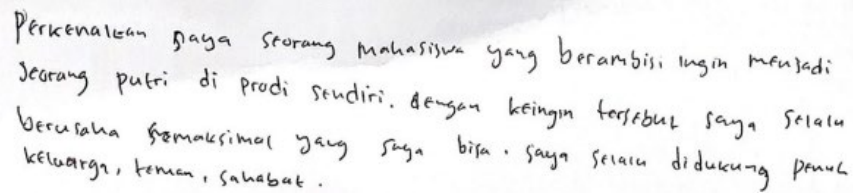 Perkenalkan saya seorang mahasiswa yang berambisi ingin menjadi
seorang putri di prodi sendiri. dengan keingin tersebut saya selalu
berusaha semaksimal yang saya bisa. saya selalu didukung penuh
keluarga, teman, sahabat.